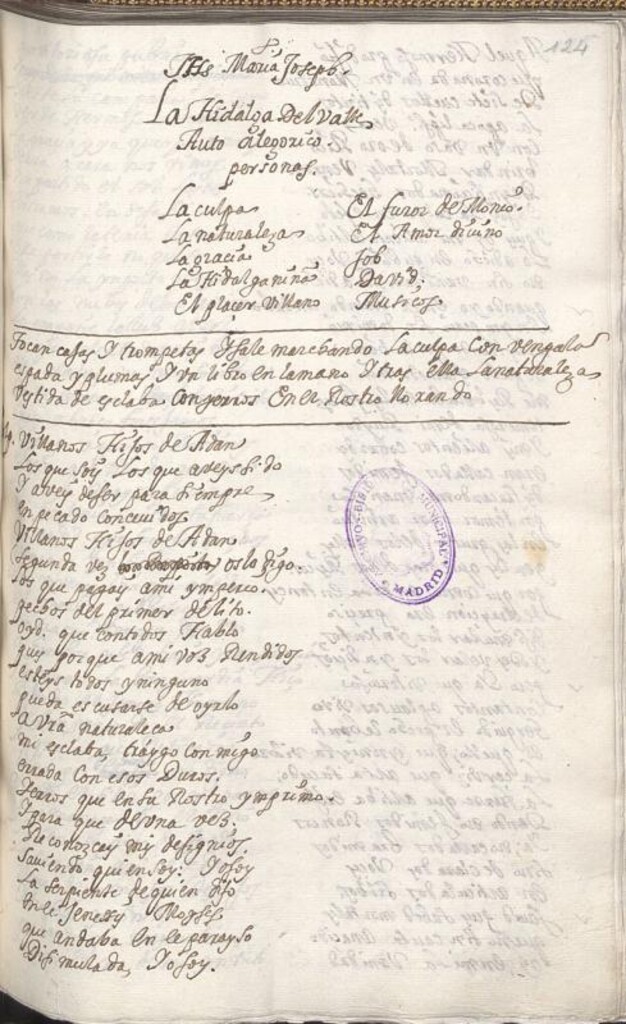 124
JHS Maria Joseph.
La Hidalga Del Valle
Auto alegorico.
personas.
La culpa
La naturaleza
La gracia
La Hidalga niña
El plaçer Villano
El furor de Moncº.
El Amor diuino
Job
David,
Musicos
Tocan cajas Y trompetas Y sale marchando La culpa Con vengala
espada y plumas Y Vn libro en la mano Y tras Ella La naturaleza
Vestida de esclaba Con yerros En el Rostro llorando
Villanos Hijos de Adan
Los que sois, Los que aveys sido
Y aveys de ser para siempre
en pecado Conceuidos
Villanos Hijos de Adan
segunda vez os lo digo.
los que pagays a mi ymperio
pechos del primer delito.
oyd. que con todos Hablo
pues porque a mi voz Rendidos
esteys todos y ninguno
pueda escusarse de oyrlo
a vrã naturaleça
mi esclaba, traygo conmigo
errada Con esos Duros.
Yerros que en su Rostro ymprimo.
Y para que de vna vez.
Reconozcays mis designios.
sauiendo quien soy: Yo soy
La serpiente de quien dijo
en el Jenesis Moyses
que andaba en el parayso
Disimulada, Yo soy.
ARCHIVO-BIBLIOTECA MUNICIPAL
MADRID